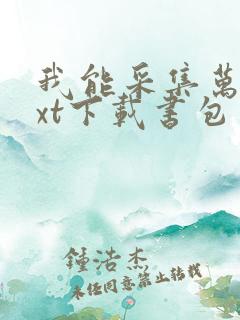 我能采集萬
xt下載書包
鍾浩杰
未任同意禁止转载